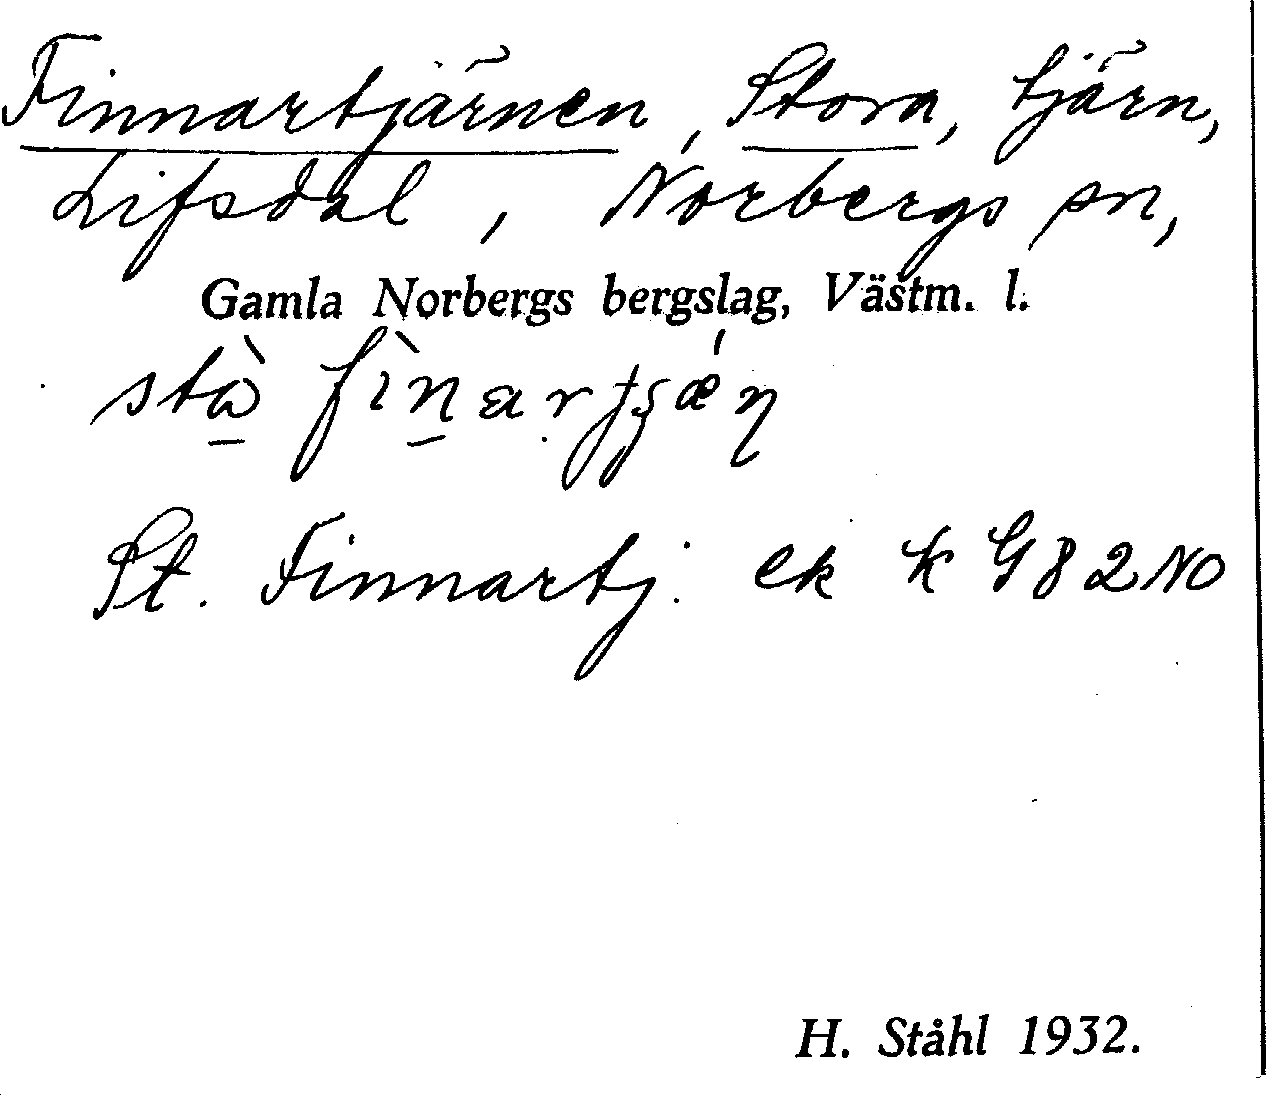 Finnartjärnen, Stora, tjärn,
Lifsdal, Norbergs sn,
Gamla Norbergs bergslag, Västm. l.
St. Finnartj. ek k G 82 NO
H. Ståhl 1932.